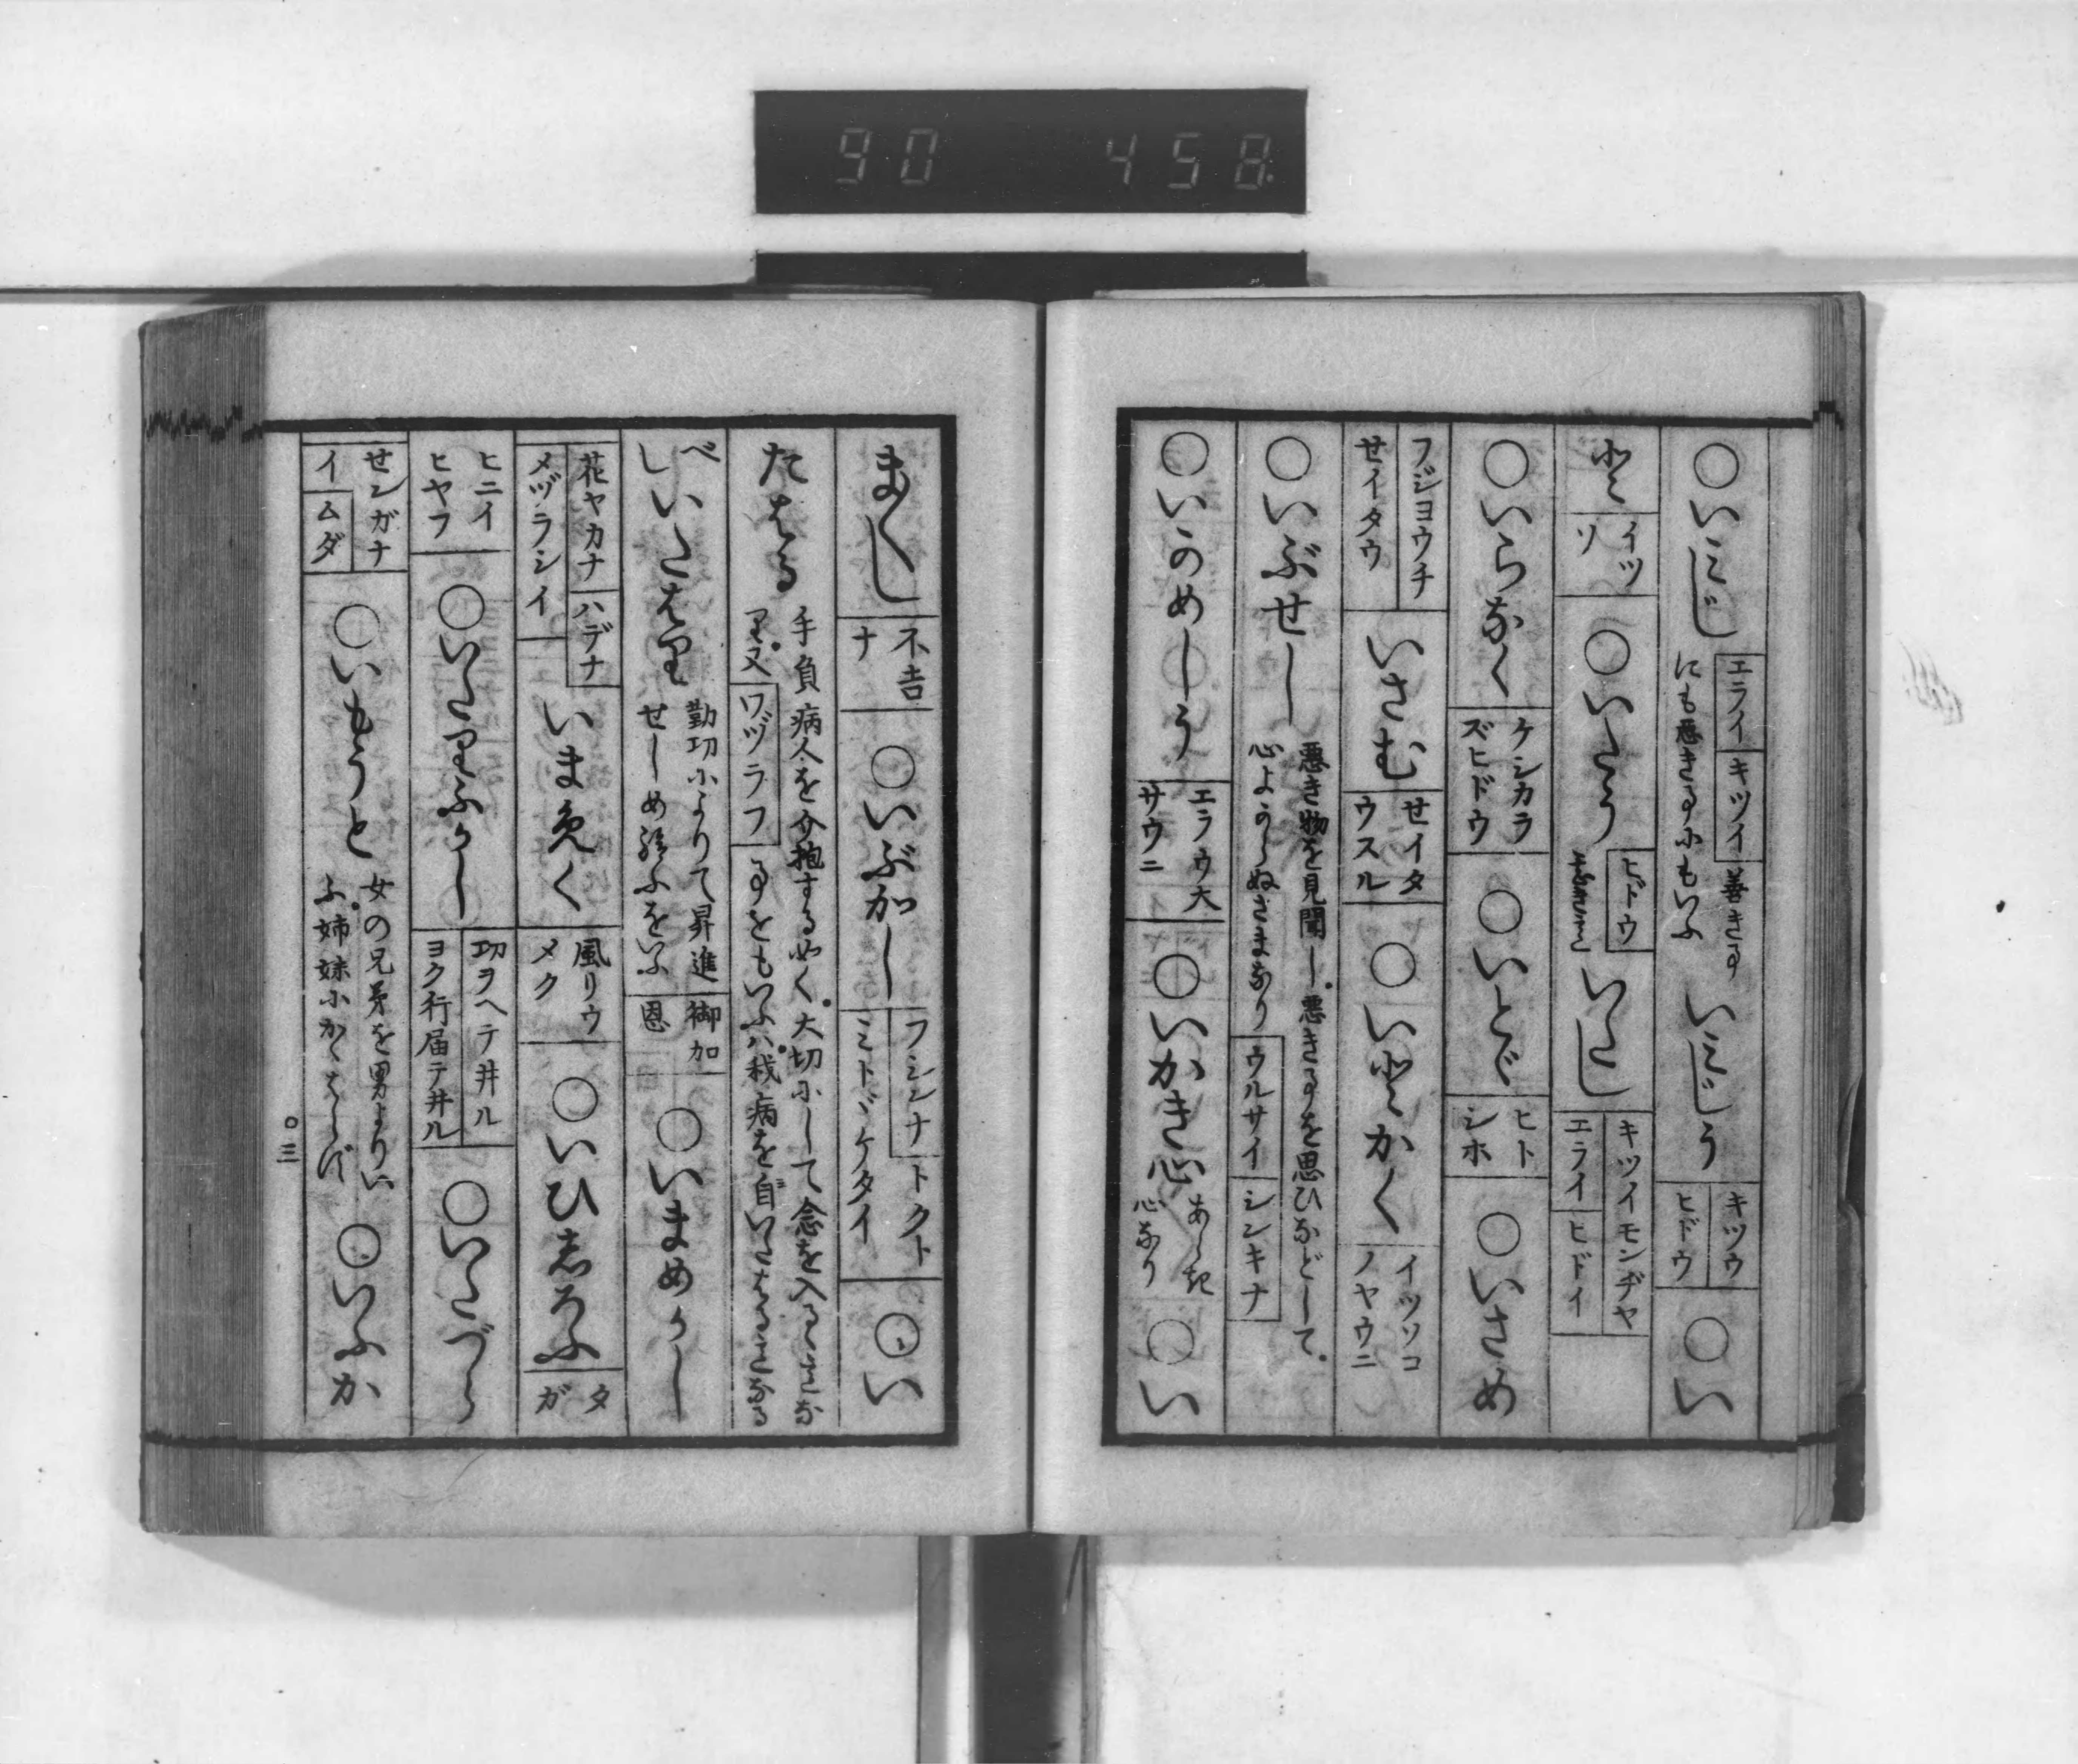 90 458
○いみじ エライ キツイ 善き事にも悪き事にもいふ いみじう キツウ ヒドウ ○い
かに イツソ ○いたう ヒドウ いたし キツイモンヂヤ エライ ヒドイ
○いらなく ケシカラズヒドウ ○いとゞ ヒトシホ ○いさめ
フジヨウチ せイタウ いさむ せイタウスル ○いかにかく イツソコノヤウニ
○いぶせし 悪き物を見聞し悪き事を思ひなどして。心よからぬさまなり ウルサイ シンキナ
○いかめしう エラウ大サウニ ○いかき心 あらき心なり ○い
まくし 不吉ナ ○いぶかし フシンナ トクトミトヾケタイ ○い
たはる 手負病人を介抱する如く。大切にして念を入るゝことなり。又 ワヅラフ 事をもいふハ。我病を自いたはることなる
べし いたはり 勤功によりて昇進せしめ給ふをいふ 御加恩 ○いまめかし
花ヤカナ ハデナ メヅラシイ いまめく 風リウメク ○いひしろふ タガ
ヒニイヒヤフ ○いたりふかし 功ヲヘテ井ル ヨク行届テ井ル ○いたづら
せンガナイ ムダ ○いもうと 女の兄弟を男よりいふ。姉妹にかゝはらず ○いふか
○三